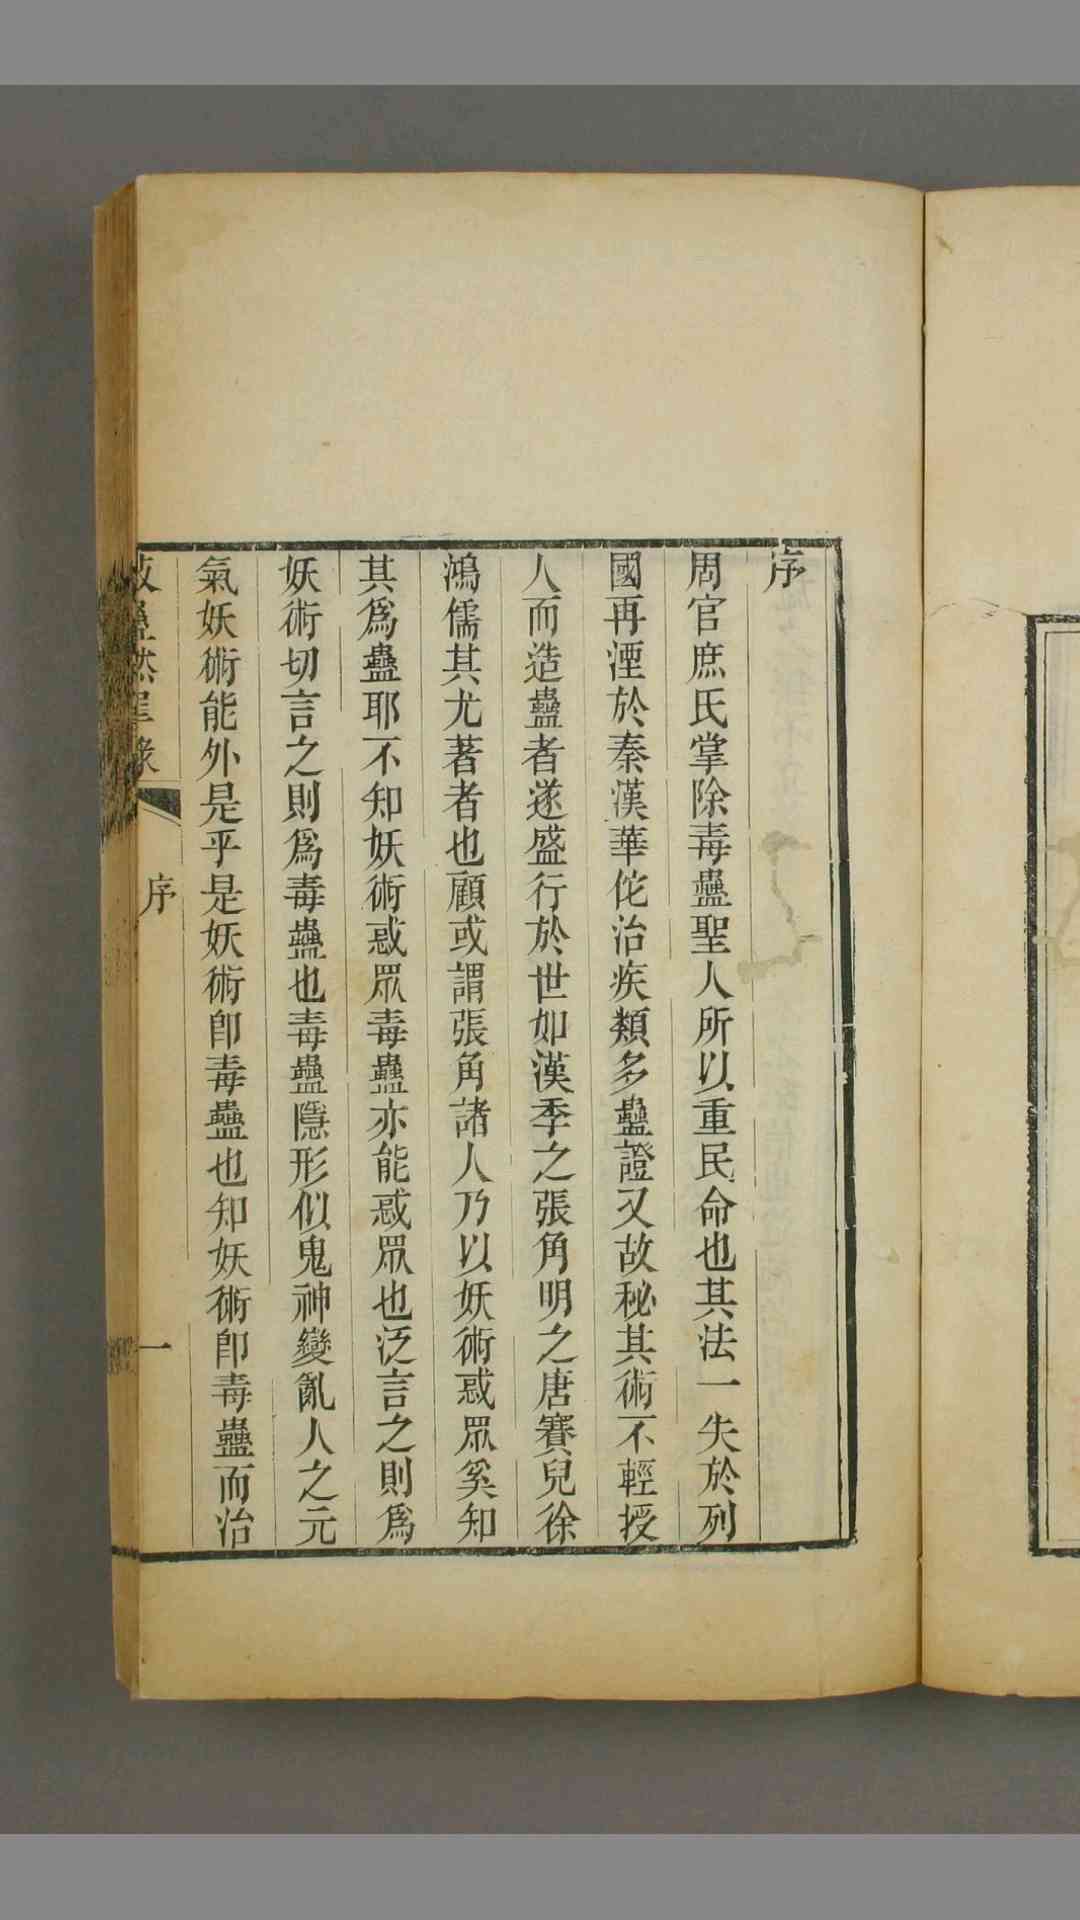 序
周官庶氏掌除毒蠱聖人所以重民命也其法一失於列
國再湮於秦漢華佗治疾類多蠱證又故秘其術不輕授
人而造蠱者遂盛行於世如漢季之張角明之唐賽兒徐
鴻儒其尤著者也顧或謂張角諸人乃以妖術惑眾奚知
其爲蠱耶不知妖術惑眾毒蠱亦能惑眾也泛言之則爲
妖術切言之則爲毒蠱也毒蠱隱形似鬼神變亂人之元
氣妖術能外是乎是妖術卽毒蠱也知妖術卽毒蠱而治
序
一